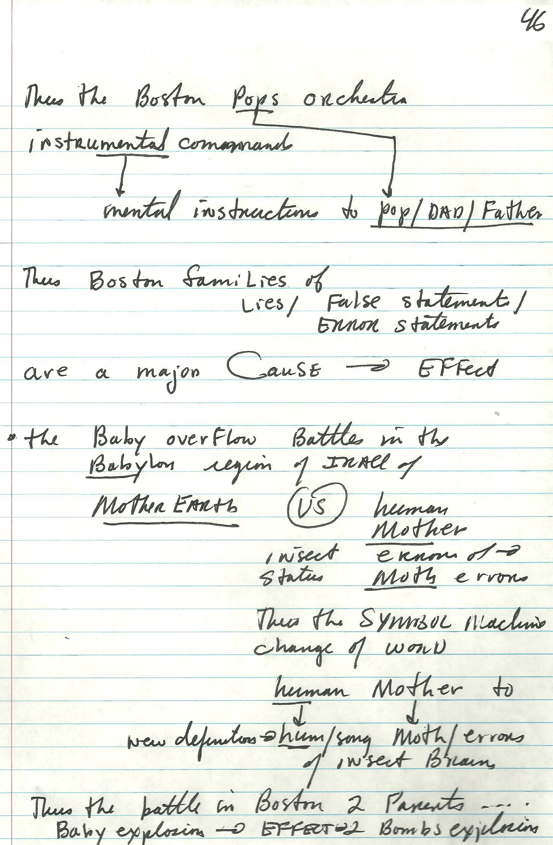 46
Thus the Boston Pops orchestra
instrumental commands
mental instructions to pop/DAD/Father
Thus Boston families of
Lies/ False statements/
ERROR statements
are a major CAUSE → EFFect
the Baby overFlow Battles in the
Babylon region of IRAQ of
MotheR EARth VS human
Mother
insect errors of →
status Moth errors
Thus the SYMBOL Machine
change of WORD
human Mother to
new definition → hum/song Moth/errors
of insect Brains
Thus the battle in Boston 2 Parents ....
Baby explosion → EFFECT → 2 Bombs explosion